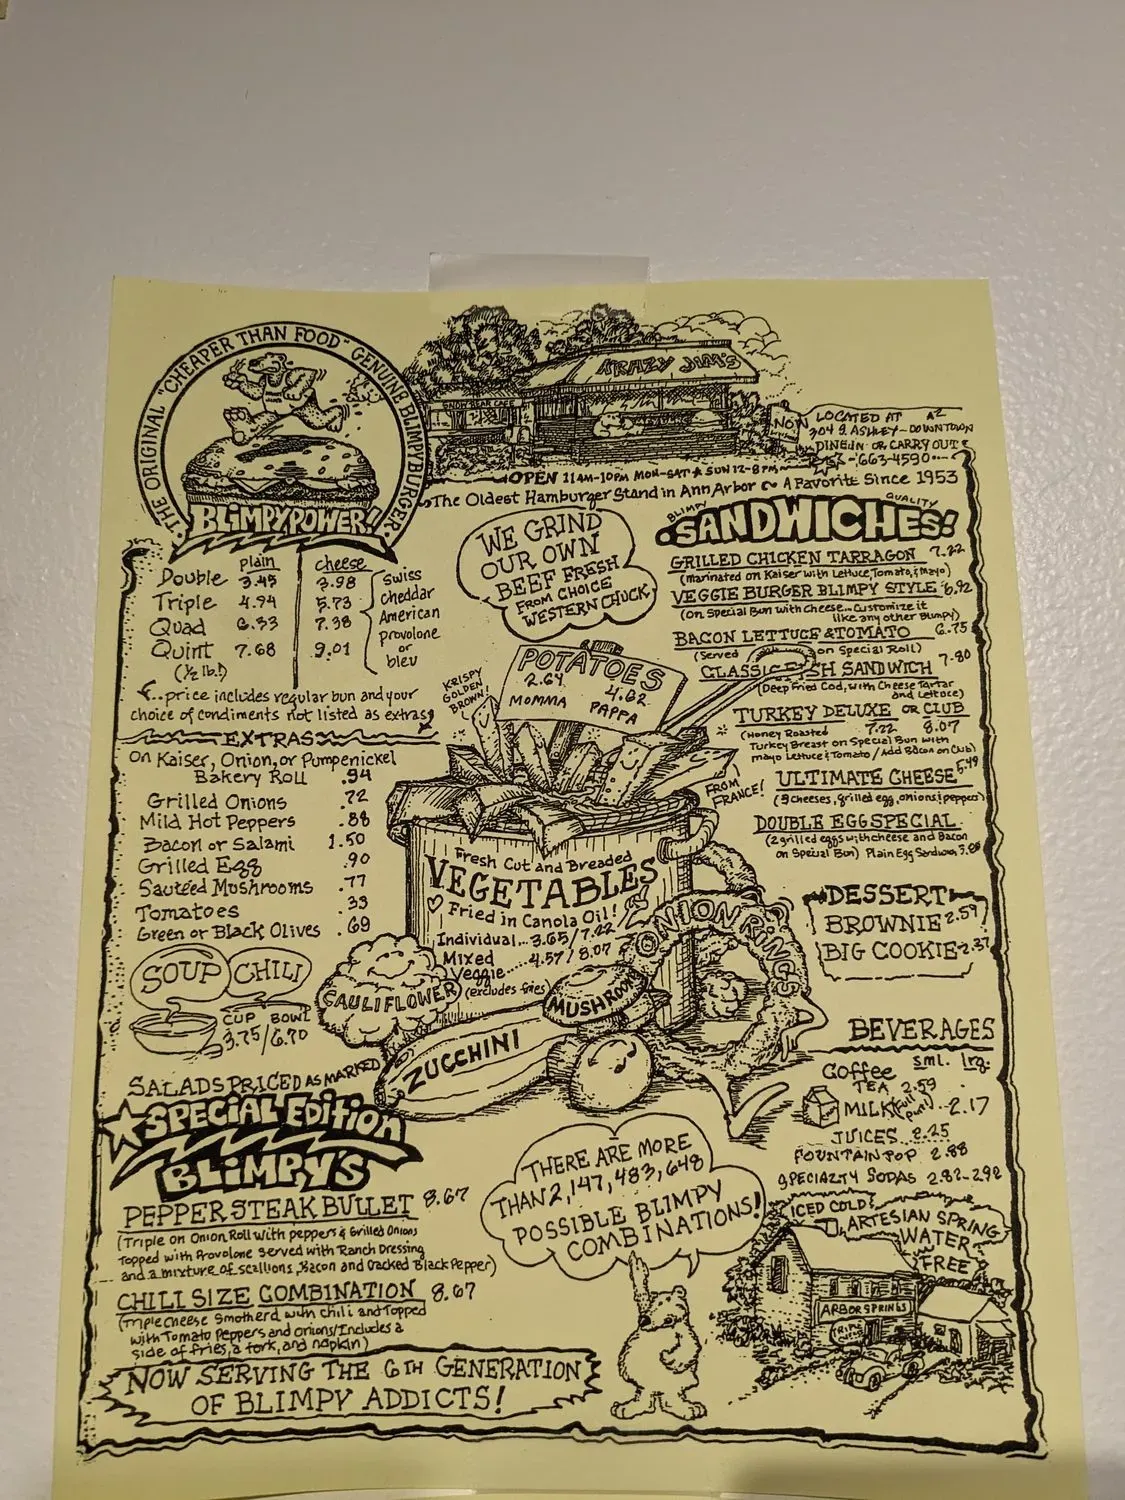 THE ORIGINAL "CHEAPER THAN FOOD" GENUINE BLIMPYBURGER
BLIMPYPOWER!
KRAZY JIM'S
NOW LOCATED AT A2
304 S. ASHLEY - DOWNTOWN
DINE IN OR CARRY OUT
-663-4590-
OPEN 11AM-10PM MON-SAT ★ SUN 12-8PM
The Oldest Hamburger Stand in Ann Arbor ~ A Favorite Since 1953
plain cheese
Double 3.45 3.98
Triple 4.94 5.73
Quad 6.33 7.38
Quint 7.68 9.01
(½ lb.!)
Swiss
cheddar
American
provolone
or
bleu
...price includes regular bun and your
choice of condiments not listed as extras
EXTRAS
On Kaiser, Onion, or Pumpenickel
Bakery Roll .94
Grilled Onions .72
Mild Hot Peppers .88
Bacon or Salami 1.50
Grilled Egg .90
Sautéed Mushrooms .77
Tomatoes .33
Green or Black Olives .69
SOUP CHILI
CUP BOWL
3.75/6.70
SALADS PRICED AS MARKED
SPECIAL EDITION
BLIMPY'S
PEPPER STEAK BULLET 8.67
(Triple on Onion Roll with peppers & Grilled Onions
Topped with Provolone served with Ranch Dressing
and a mixture of scallions, Bacon and Cracked Black Pepper)
CHILI SIZE COMBINATION 8.67
(Triple Cheese Smotherd with chili and Topped
with Tomato Peppers and Onions/Includes a
side of fries, a fork, and napkin)
NOW SERVING THE 6TH GENERATION
OF BLIMPY ADDICTS!
WE GRIND
OUR OWN
BEEF FRESH
FROM CHOICE
WESTERN CHUCK
KRISPY
GOLDEN
BROWN!
POTATOES
2.64 4.62
MOMMA PAPPA
FROM
FRANCE!
Fresh Cut and Breaded
VEGETABLES
Fried in Canola Oil!
Individual... 3.65/7.22
Mixed
Veggie..... 4.57/8.07
(excludes fries)
CAULIFLOWER
MUSHROOM
ONION RINGS
ZUCCHINI
THERE ARE MORE
THAN 2,147,483,648
POSSIBLE BLIMPY
COMBINATIONS!
BLIMPY QUALITY
SANDWICHES!
GRILLED CHICKEN TARRAGON 7.22
(marinated on Kaiser with Lettuce, Tomato, & Mayo)
VEGGIE BURGER BLIMPY STYLE 6.92
(On Special Bun with Cheese...Customize it
like any other Blimpy)
BACON LETTUCE & TOMATO 6.75
(Served on Special Roll)
CLASSIC FISH SANDWICH 7.80
(Deep Fried Cod, With Cheese Tartar
and Lettuce)
TURKEY DELUXE OR CLUB
7.22 8.07
(Honey Roasted
Turkey Breast on Special Bun with
mayo Lettuce & Tomato / Add Bacon on Club)
ULTIMATE CHEESE 5.49
(3 cheeses, grilled egg, onions & peppers)
DOUBLE EGG SPECIAL
(2 grilled eggs with cheese and Bacon
on Special Bun) Plain Egg Sandwich
DESSERT
BROWNIE 2.59
BIG COOKIE 2.37
BEVERAGES
Coffee sml. lrg.
TEA 2.59
MILK (full pint) -2.17
JUICES..2.25
FOUNTAIN POP 2.88
SPECIALTY SODAS 2.82-2.92
ICED COLD!
ARTESIAN SPRING
WATER
FREE
ARBOR SPRINGS